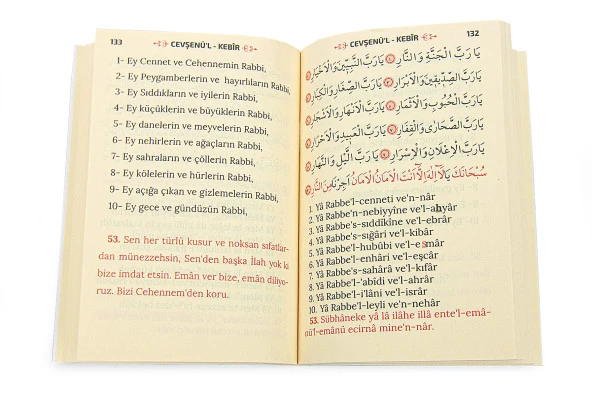 132
CEVŞENÜ'L - KEBÎR
يَا رَبَّ الْجَنَّةِ وَالنَّارِ يَا رَبَّ النَّبِيِّينَ وَالْاَخْيَارِ
يَا رَبَّ الصِّدِّيقِينَ وَالْاَبْرَارِ يَا رَبَّ الصِّغَارِ وَالْكِبَارِ
يَا رَبَّ الْحُبُوبِ وَالْاَثْمَارِ يَا رَبَّ الْاَنْهَارِ وَالْاَشْجَارِ
يَا رَبَّ الصَّحَارٰى وَالْقِفَارِ يَا رَبَّ الْعَبِيدِ وَالْاَحْرَارِ
يَا رَبَّ الْاِعْلَانِ وَالْاِسْرَارِ يَا رَبَّ الَّيْلِ وَالنَّهَارِ
سُبْحَانَكَ يَا لَٓا اِلٰهَ اِلَّٓا اَنْتَ الْاَمَانُ الْاَمَانُ اَجِرْنَا مِنَ النَّارِ
1. Yâ Rabbe'l-cenneti ve'n-nâr
2. Yâ Rabbe'n-nebiyyîne ve'l-aḫyâr
3. Yâ Rabbe's-sıddîkîne ve'l-ebrâr
4. Yâ Rabbe's-sığâri ve'l-kibâr
5. Yâ Rabbe'l-hubûbi ve'l-esmâr
6. Yâ Rabbe'l-enhâri ve'l-eşcâr
7. Yâ Rabbe's-sahârâ ve'l-kıfâr
8. Yâ Rabbe'l-'abîdi ve'l-ahrâr
9. Yâ Rabbe'l-i'lâni ve'l-isrâr
10. Yâ Rabbe'l-leyli ve'n-nehâr
53. Sübhâneke yâ lâ ilâhe illâ ente'l-emâ-
nü'l-emânü ecirnâ mine'n-nâr.
133
CEVŞENÜ'L - KEBÎR
1- Ey Cennet ve Cehennemin Rabbi,
2- Ey Peygamberlerin ve hayırlıların Rabbi,
3- Ey Sıddıkların ve iyilerin Rabbi,
4- Ey küçüklerin ve büyüklerin Rabbi,
5- Ey danelerin ve meyvelerin Rabbi,
6- Ey nehirlerin ve ağaçların Rabbi,
7- Ey sahraların ve çöllerin Rabbi,
8- Ey kölelerin ve hürlerin Rabbi,
9- Ey açığa çıkan ve gizlemelerin Rabbi,
10- Ey gece ve gündüzün Rabbi,
53. Sen her türlü kusur ve noksan sıfatlar-
dan münezzehsin, Sen'den başka İlah yok ki
bize imdat etsin. Emân ver bize, emân diliyo-
ruz. Bizi Cehennem'den koru.